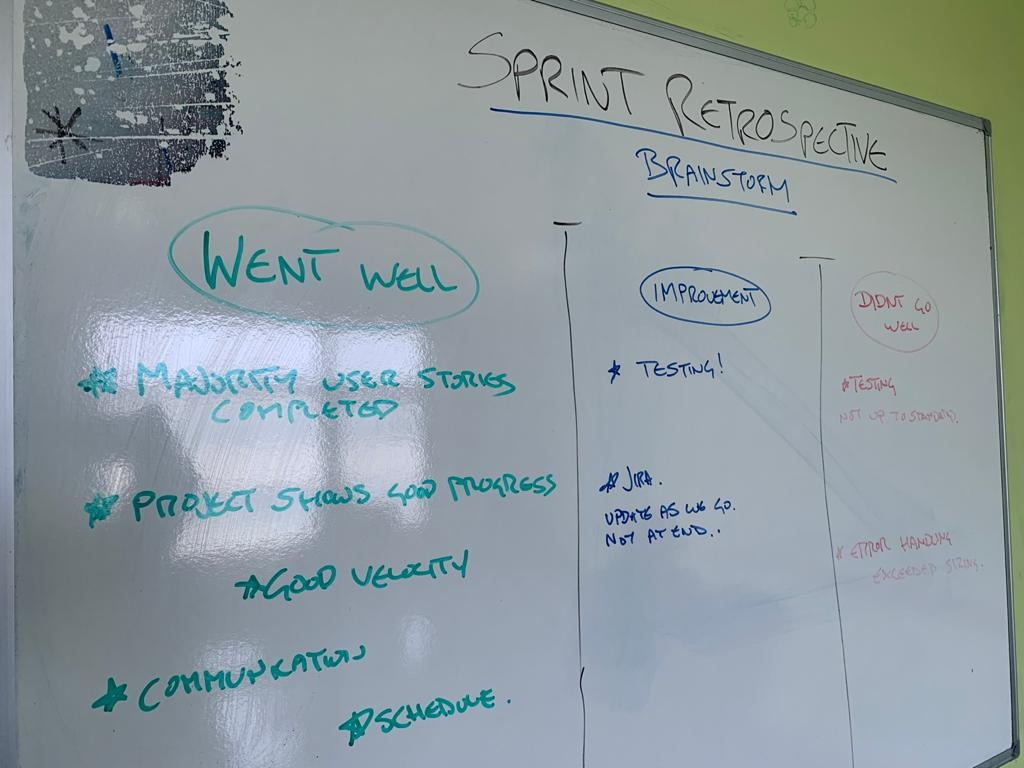 SPRINT RETROSPECTIVE
BRAINSTORM
WENT WELL
* MAJORITY USER STORIES
COMPLETED
* PROJECT SHOWS GOOD PROGRESS
* GOOD VELOCITY
* COMMUNICATION
* SCHEDULE.
IMPROVEMENT
* TESTING!
* JIRA.
UPDATE AS WE GO.
NOT AT END..
DIDNT GO
WELL
* TESTING
NOT UP TO STANDARD.
* ERROR HANDLING
EXCEEDED